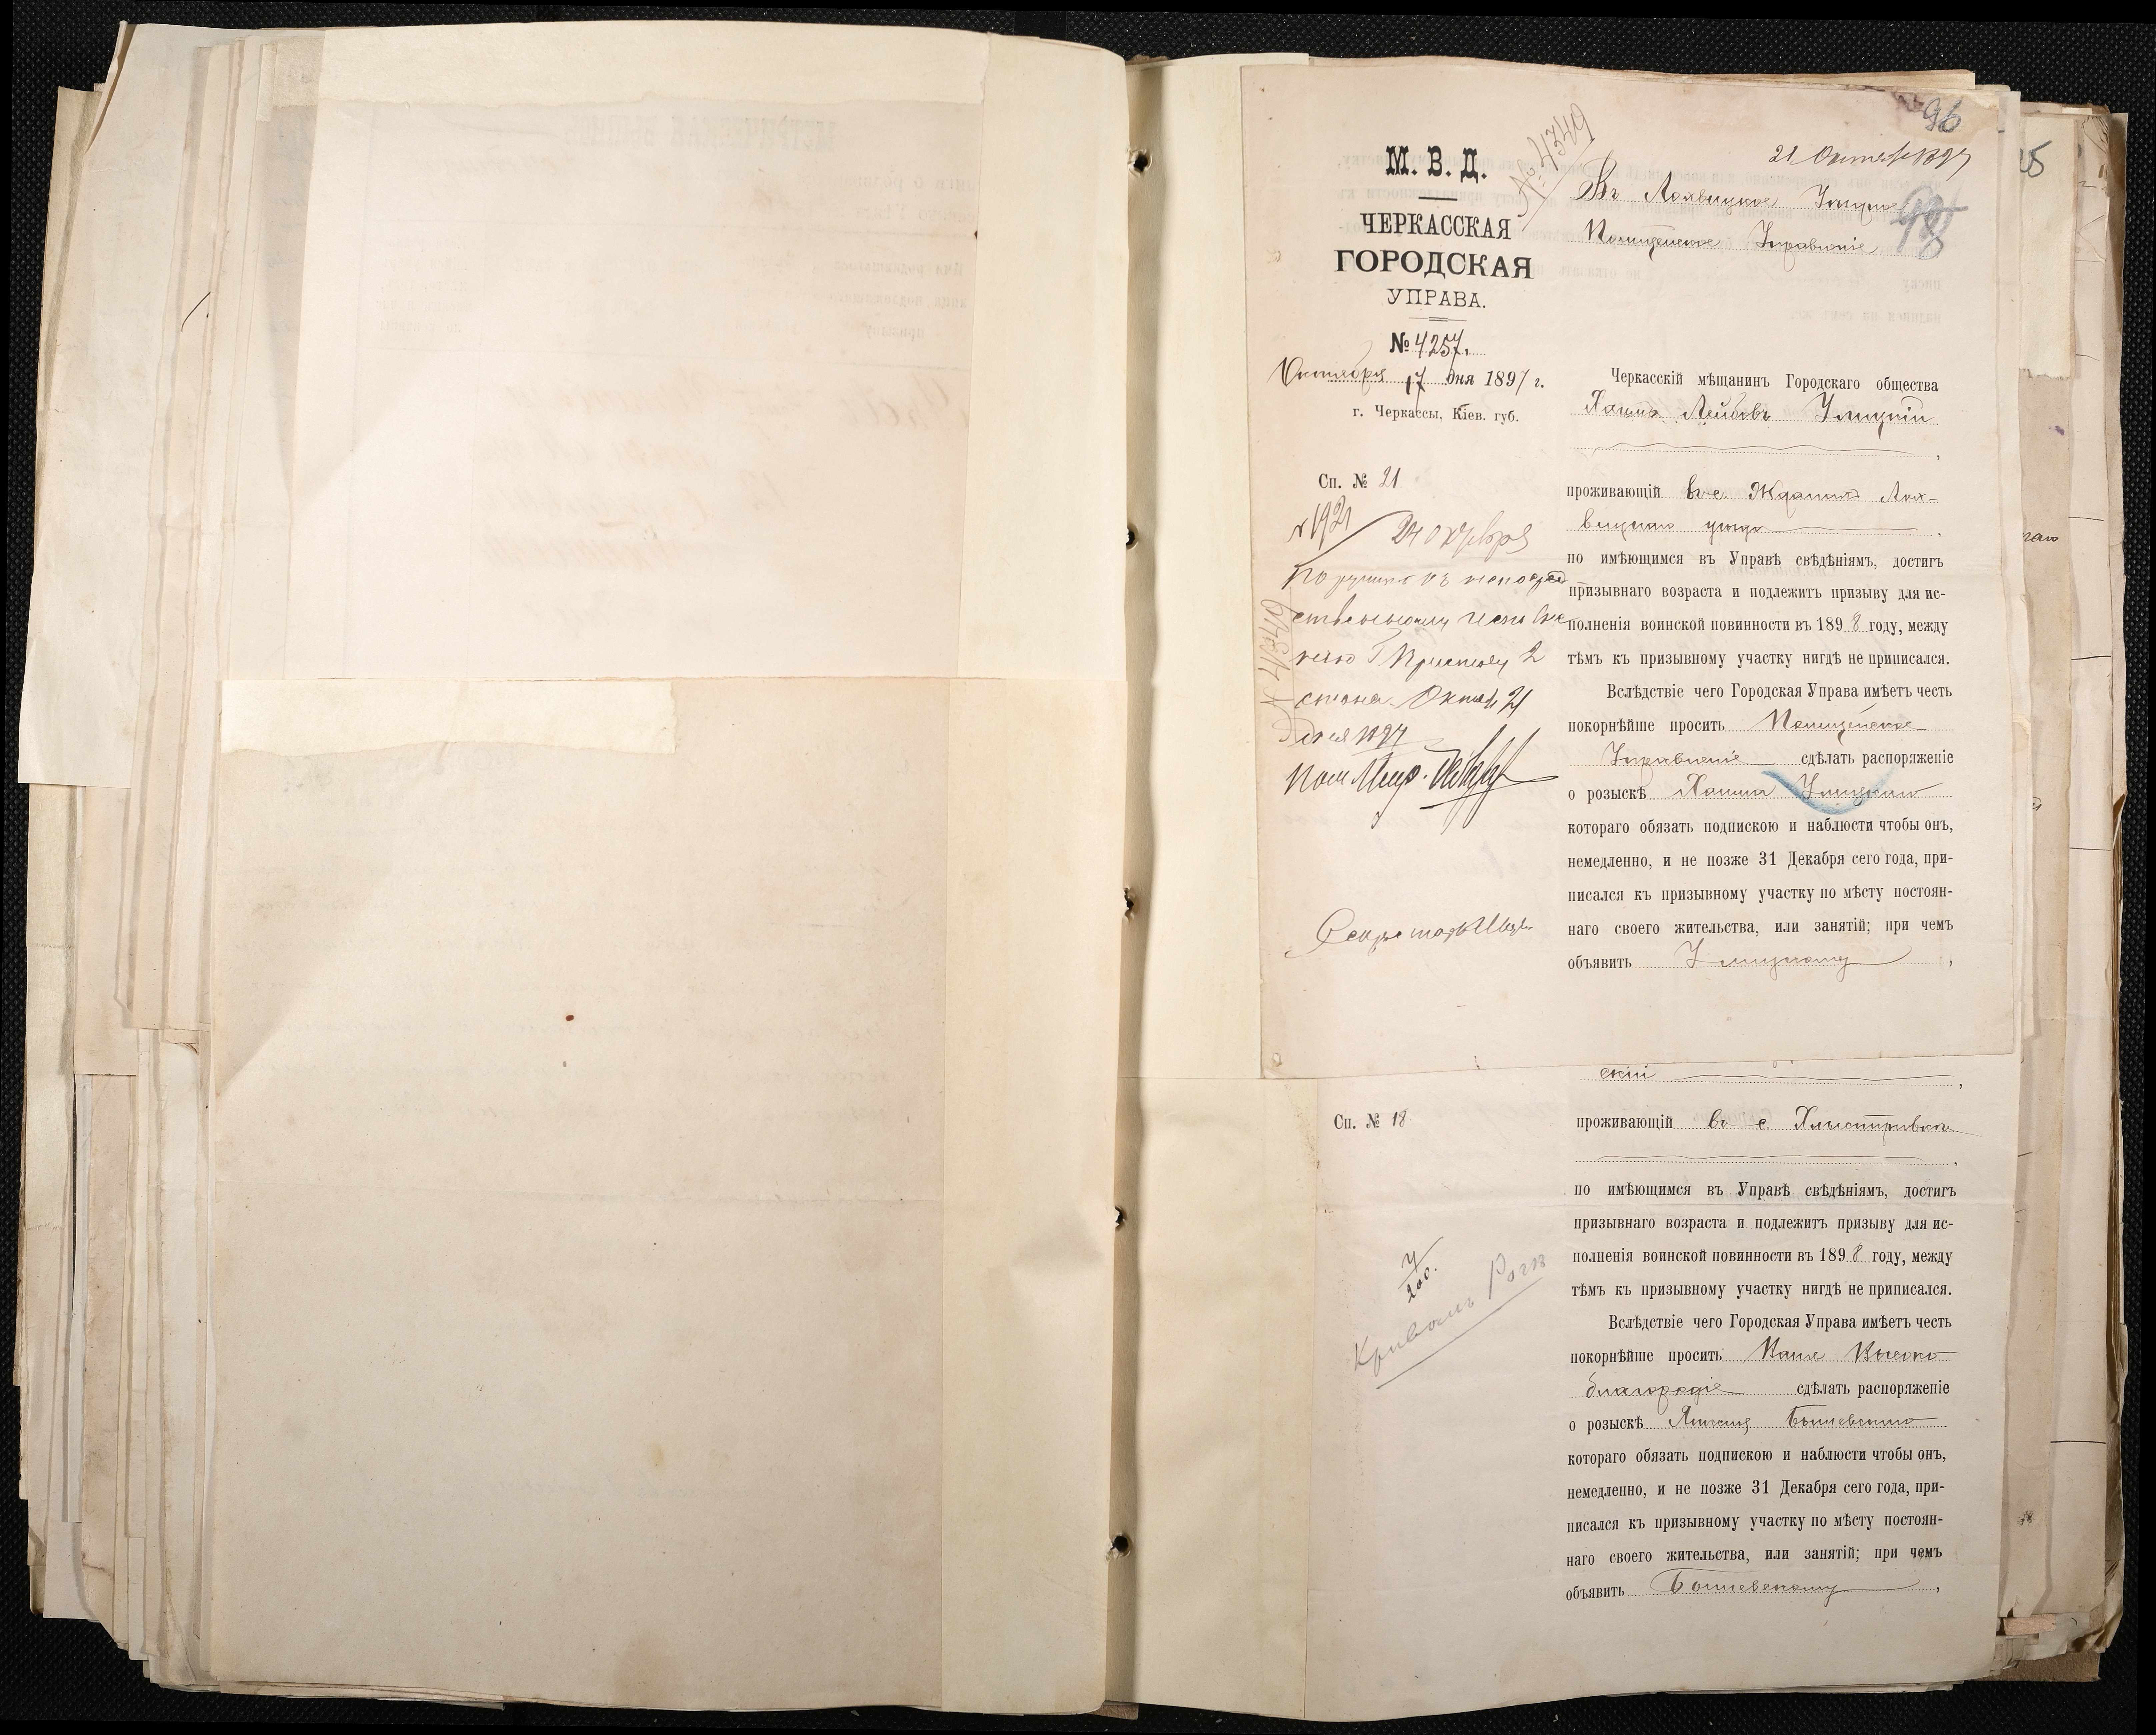 96
21 Октября 1897
№ 4349
М. В. Д.
ЧЕРКАССКАЯ
ГОРОДСКАЯ
УПРАВА.
№ 4257.
Октября 17 дня 1897 г.
г. Черкассы, Кіев. губ.
Въ Лохвицкое Уѣздное
98
Полицейское Управленіе
Черкасскій мѣщанинъ Городскаго общества
Хаимъ Лейбовъ Улицкій
,
Сп. № 21
проживающій въ с. Жданахъ Лох-
вицкаго уѣзда
по имѣющимся въ Управѣ свѣдѣніямъ, достигъ
призывнаго возраста и подлежитъ призыву для ис-
полненія воинской повинности въ 1898 году, между
тѣмъ къ призывному участку нигдѣ не приписался.
Вслѣдствіе чего Городская Управа имѣетъ честь
покорнѣйше просить Полицейское
Управленіе сдѣлать распоряженіе
о розыскѣ Хаима Улицкаго
котораго обязать подпискою и наблюсти чтобы онъ,
немедленно, и не позже 31 Декабря сего года, при-
писался къ призывному участку по мѣсту постоян-
наго своего жительства, или занятій; при чемъ
объявить Улицкому ,
№ 1921
24 октября
ственному испол
нению Г Приставу 2
стана. Октяб 21
дня 1897
№ 4349
Секретарь
скій ,
Сп. № 18
проживающій въ с Хлистуновкѣ
по имѣющимся въ Управѣ свѣдѣніямъ, достигъ
призывнаго возраста и подлежитъ призыву для ис-
полненія воинской повинности въ 1898 году, между
тѣмъ къ призывному участку нигдѣ не приписался.
Вслѣдствіе чего Городская Управа имѣетъ честь
покорнѣйше просить Ваше Высоко
благородіе сдѣлать распоряженіе
о розыскѣ
котораго обязать подпискою и наблюсти чтобы онъ,
немедленно, и не позже 31 Декабря сего года, при-
писался къ призывному участку по мѣсту постоян-
наго своего жительства, или занятій; при чемъ
объявить ,
200.
Кривомъ Рогѣ